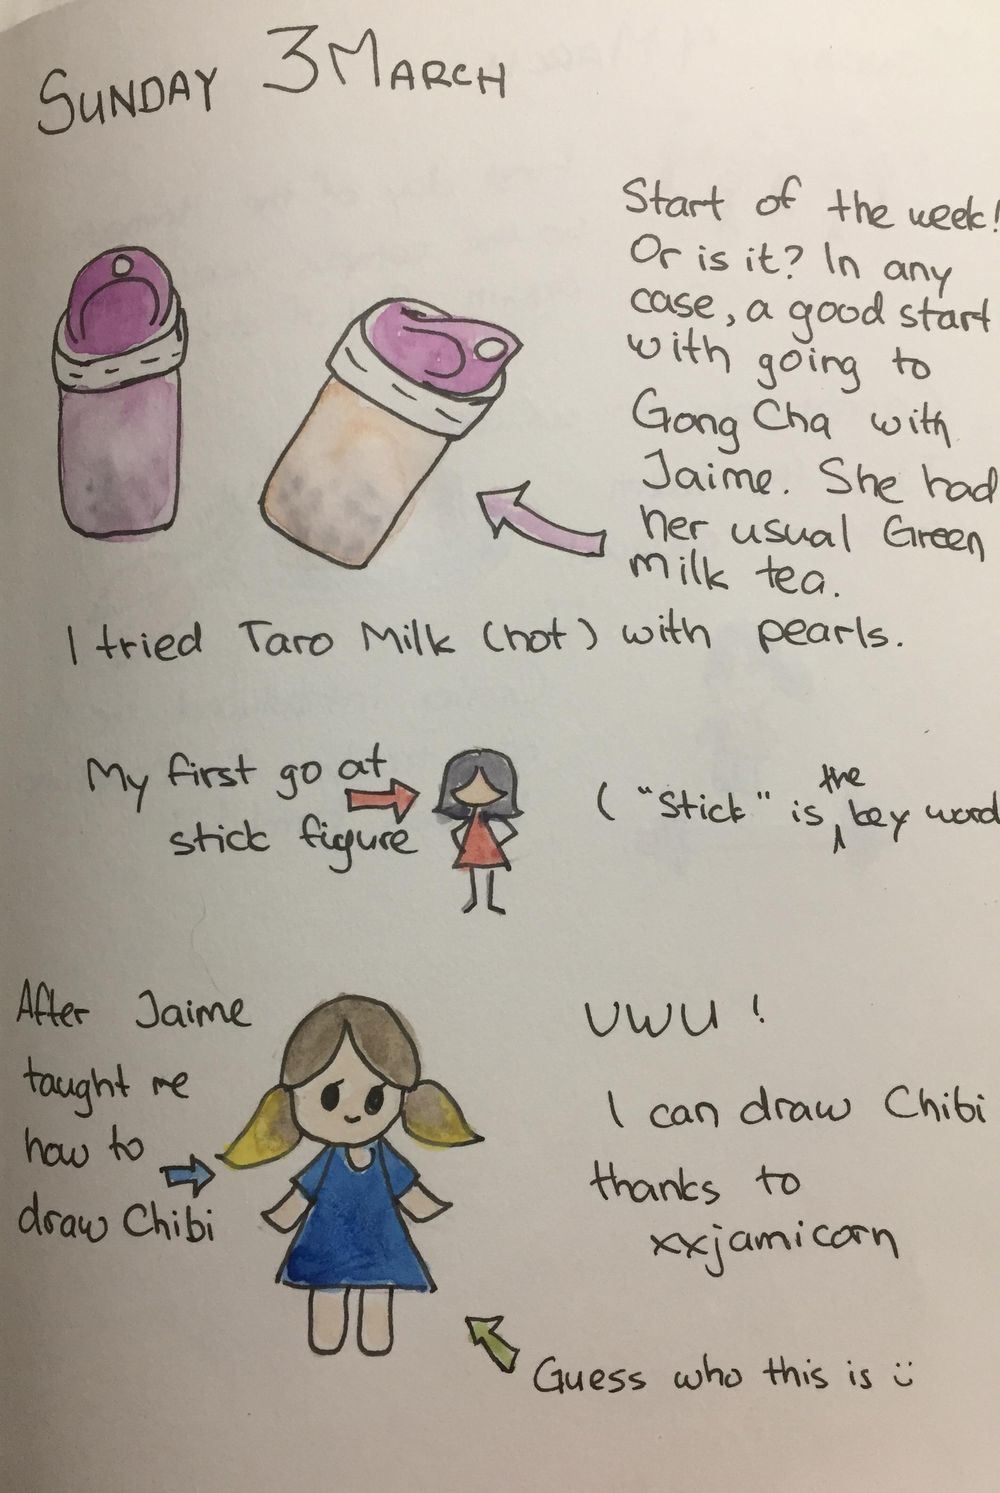 SUNDAY 3 MARCH
Start of the week!
Or is it? In any
case, a good start
with going to
Gong Cha with
Jaime. She had
her usual Green
Milk tea.
I tried Taro Milk (hot) with pearls.
My first go at
stick figure
("Stick" is the key word
After Jaime
taught me
how to
draw Chibi
UWU !
I can draw Chibi
thanks to
xxjamicorn
Guess who this is :)